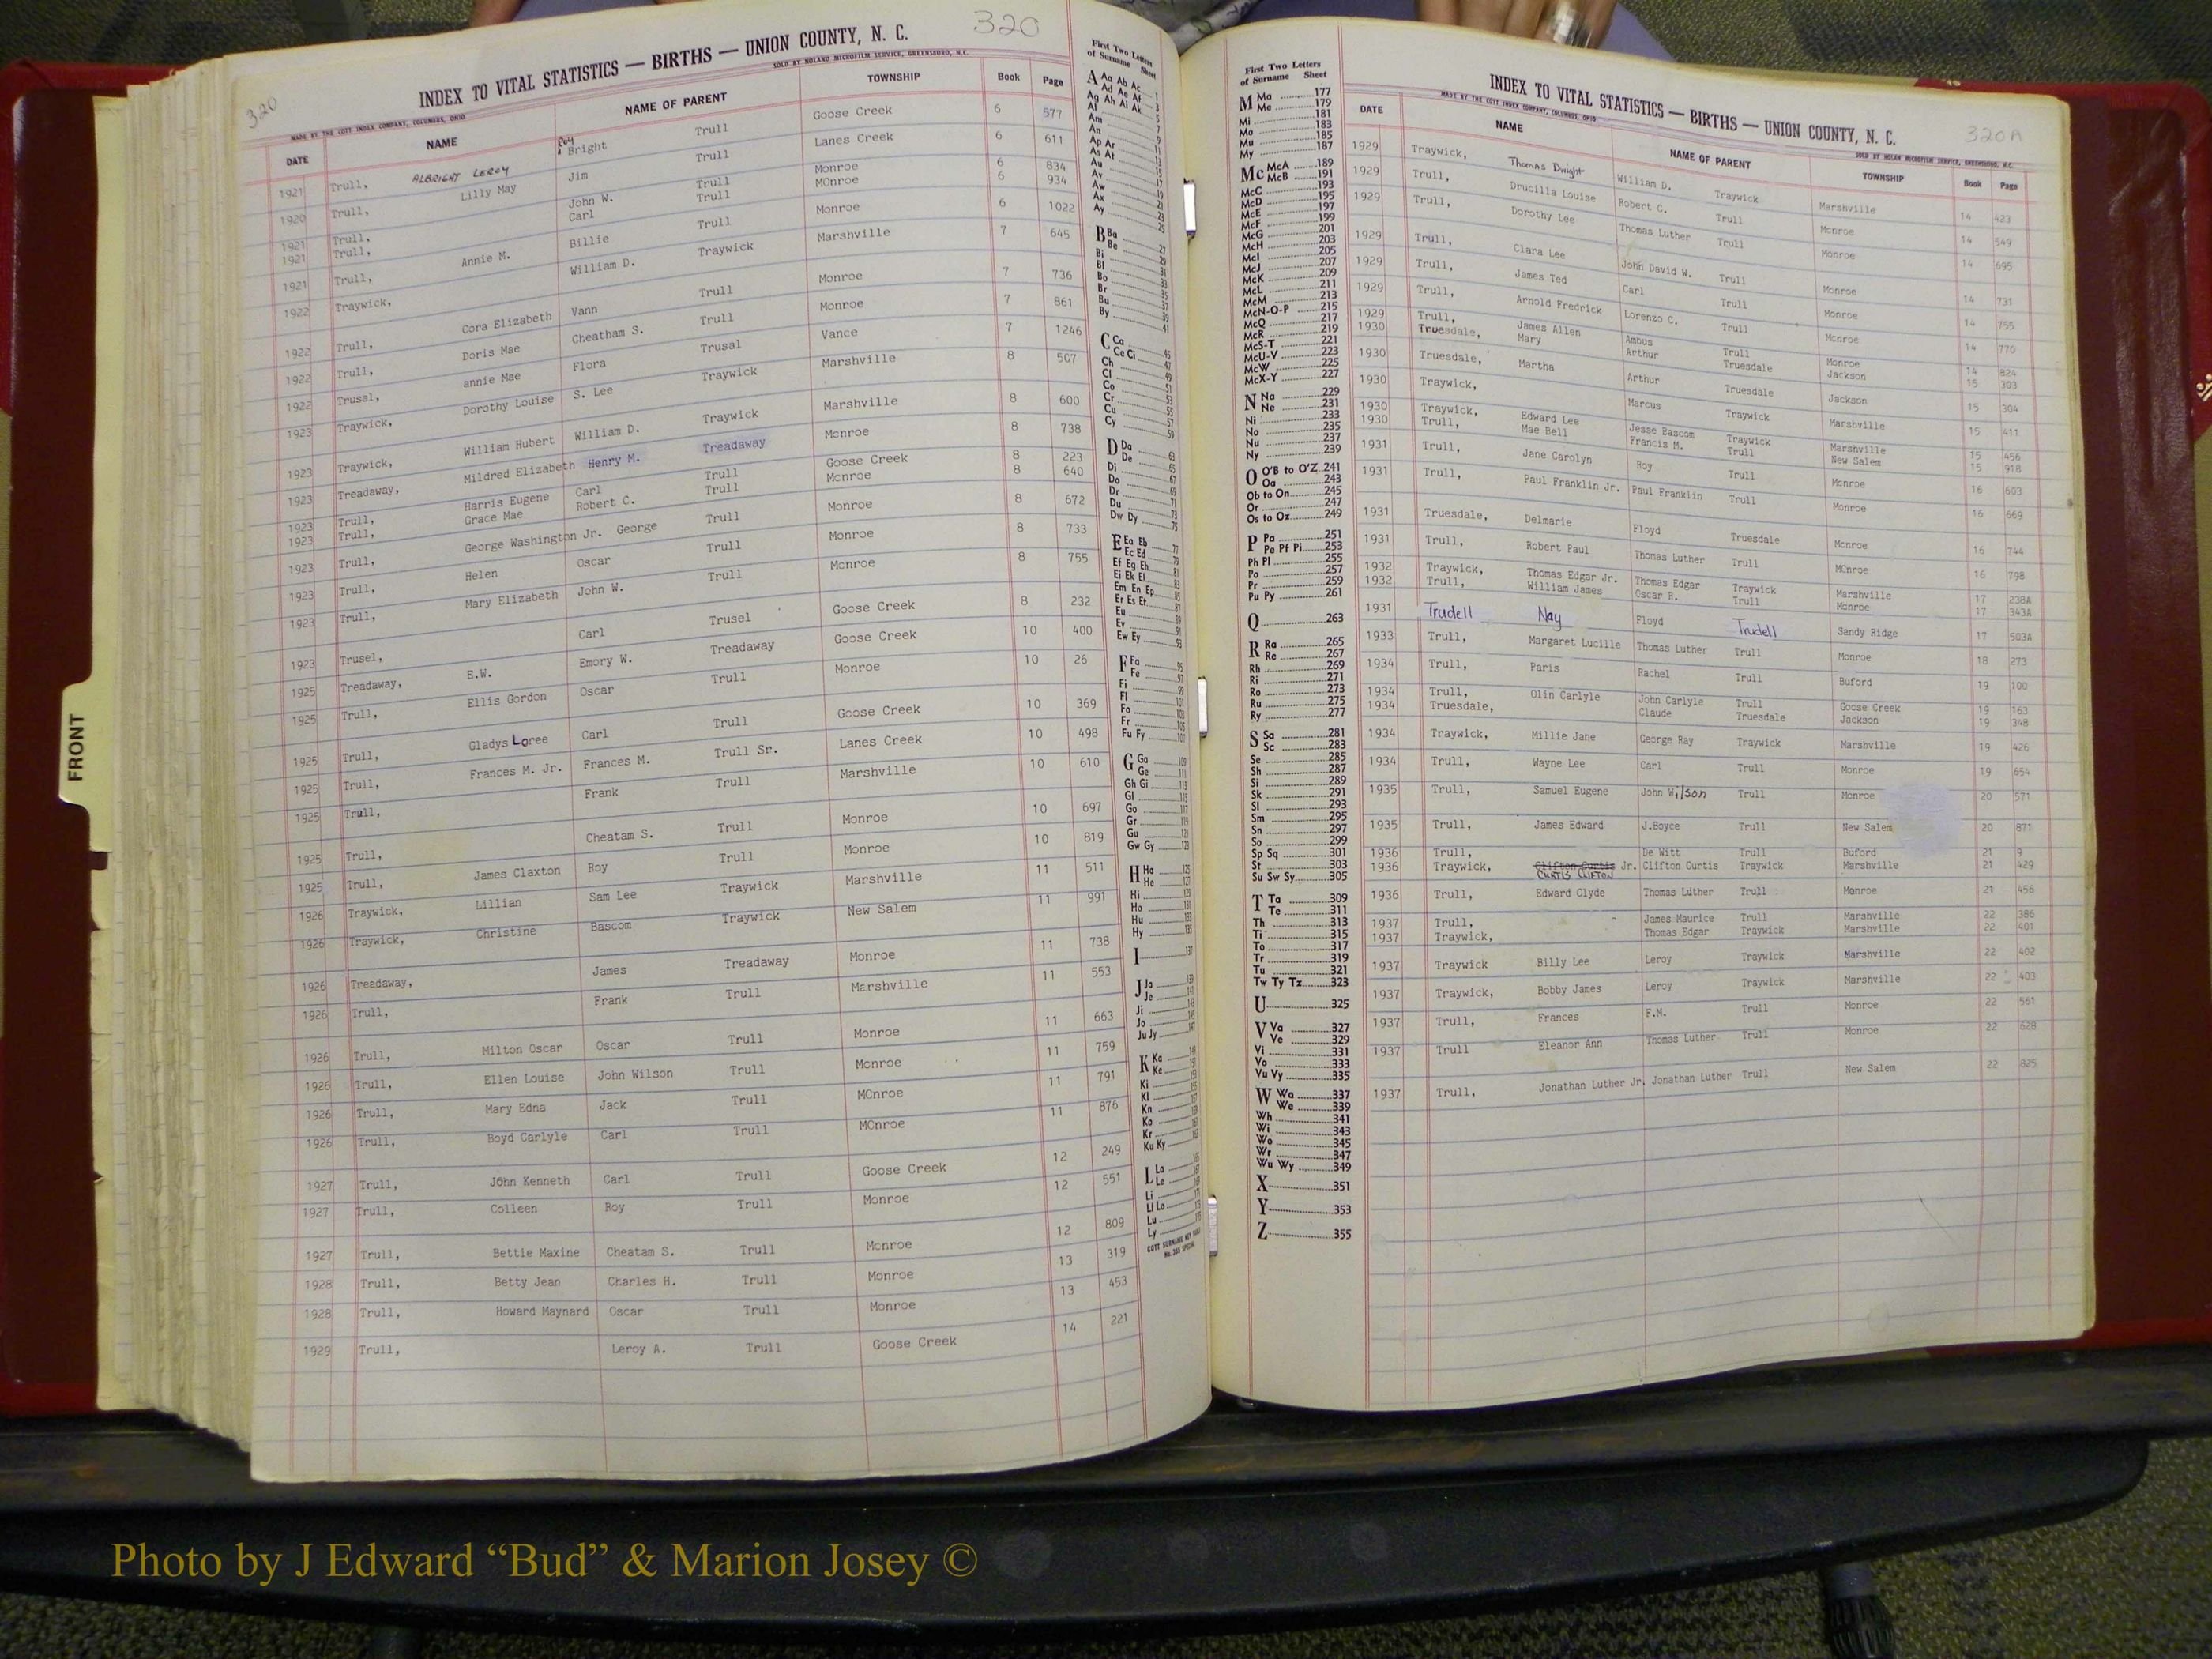 320
320
INDEX TO VITAL STATISTICS — BIRTHS — UNION COUNTY, N. C.
MADE BY THE COTT INDEX COMPANY, COLUMBUS, OHIO SOLD BY NOLAND MICROFILM SERVICE, GREENSBORO, N.C.
DATE NAME NAME OF PARENT TOWNSHIP Book Page
1921 Trull, ALBRIGHT LEROY Roy Bright Trull Goose Creek 6 577
1920 Trull, Lilly May Jim Trull Lanes Creek 6 611
1921 Trull, John W. Trull Monroe 6 834
1921 Trull, Carl Trull MOnroe 6 934
1921 Trull, Annie M. Billie Trull Monroe 6 1022
1922 Traywick, William D. Traywick Marshville 7 645
1922 Trull, Cora Elizabeth Vann Trull Monroe 7 736
1922 Trull, Doris Mae Cheatham S. Trull Monroe 7 861
1922 Trusal, annie Mae Flora Trusal Vance 7 1246
1923 Traywick, Dorothy Louise S. Lee Traywick Marshville 8 507
1923 Traywick, William Hubert William D. Traywick Marshville 8 600
1923 Treadaway, Mildred Elizabeth Henry M. Treadaway Monroe 8 738
1923 Trull, Harris Eugene Carl Trull Goose Creek 8 223
1923 Trull, Grace Mae Robert C. Trull Monroe 8 640
1923 Trull, George Washington Jr. George Trull Monroe 8 672
1923 Trull, Helen Oscar Trull Monroe 8 733
1923 Trull, Mary Elizabeth John W. Trull Monroe 8 755
1923 Trusel, Carl Trusel Goose Creek 8 232
1925 Treadaway, E.W. Emory W. Treadaway Goose Creek 10 400
1925 Trull, Ellis Gordon Oscar Trull Monroe 10 26
1925 Trull, Gladys Loree Carl Trull Goose Creek 10 369
1925 Trull, Frances M. Jr. Frances M. Trull Sr. Lanes Creek 10 498
1925 Trull, Frank Trull Marshville 10 610
1925 Trull, Cheatam S. Trull Monroe 10 697
1925 Trull, James Claxton Roy Trull Monroe 10 819
1926 Traywick, Lillian Sam Lee Traywick Marshville 11 511
1926 Traywick, Christine Bascom Traywick New Salem 11 991
1926 Treadaway, James Treadaway Monroe 11 738
1926 Trull, Frank Trull Marshville 11 553
1926 Trull, Milton Oscar Oscar Trull Monroe 11 663
1926 Trull, Ellen Louise John Wilson Trull Monroe 11 759
1926 Trull, Mary Edna Jack Trull MOnroe 11 791
1926 Trull, Boyd Carlyle Carl Trull MOnroe 11 876
1927 Trull, John Kenneth Carl Trull Goose Creek 12 249
1927 Trull, Colleen Roy Trull Monroe 12 551
1927 Trull, Bettie Maxine Cheatam S. Trull Monroe 12 809
1928 Trull, Betty Jean Charles H. Trull Monroe 13 319
1928 Trull, Howard Maynard Oscar Trull Monroe 13 453
1929 Trull, Leroy A. Trull Goose Creek 14 221
First Two Letters
of Surname Sheet
A Aa Ab Ac 1
Ad Ae Af 3
Ag Ah Ai Ak 5
Al 7
Am 9
An 11
Ap Ar 13
As At 15
Au 17
Av 19
Aw 21
Ax 23
Ay 25
B Ba 27
Be 29
Bi 31
Bl 33
Bo 35
Br 37
Bu 39
By 41
C Ca 45
Ce Ci 47
Ch 49
Cl 51
Co 53
Cr 55
Cu 57
Cy 59
D Da 63
De 65
Di 67
Do 69
Dr 71
Du 73
Dw Dy 75
E Ea Eb 77
Ec Ed 79
Ef Eg Eh 81
Ei Ek El 83
Em En Ep 85
Er Es Et 87
Eu 89
Ev 91
Ew Ey 93
F Fa 95
Fe 97
Fi 99
Fl 101
Fo 103
Fr 105
Fu Fy 107
G Ga 109
Ge 111
Gh Gi 113
Gl 115
Go 117
Gr 119
Gu 121
Gw Gy 123
H Ha 125
He 127
Hi
Ho
Hu
Hy
I
J Ja
Je
Ji
Jo
Ju Jy
K Ka
Ke
Ki
Kl
Kn
Ko
Kr
Ku Ky
L La
Le
Li
Ll Lo
Lu
Ly
First Two Letters
of Surname Sheet
M Ma 177
Me 179
Mi 181
Mo 183
Mu 185
My 187
Mc McA 189
McB 191
McC 193
McD 195
McE 197
McF 199
McG 201
McH 203
McI 205
McJ 207
McK 209
McL 211
McM 213
McN-O-P 215
McQ 217
McR 219
McS-T 221
McU-V 223
McW 225
McX-Y 227
N Na 229
Ne 231
Ni 233
No 235
Nu 237
Ny 239
O O'B to O'Z 241
Oa 243
Ob to On 245
Or 247
Os to Oz 249
P Pa 251
Pe Pf Pi 253
Ph Pl 255
Po 257
Pr 259
Pu Py 261
Q 263
R Ra 265
Re 267
Rh 269
Ri 271
Ro 273
Ru 275
Ry 277
S Sa 281
Sc 283
Se 285
Sh 287
Si 289
Sk 291
Sl 293
Sm 295
Sn 297
So 299
Sp Sq 301
St 303
Su Sw Sy 305
T Ta 309
Te 311
Th 313
Ti 315
To 317
Tr 319
Tu 321
Tw Ty Tz 323
U 325
V Va 327
Ve 329
Vi 331
Vo 333
Vu Vy 335
W Wa 337
We 339
Wh 341
Wi 343
Wo 345
Wr 347
Wu Wy 349
X 351
Y 353
Z 355
320A
INDEX TO VITAL STATISTICS — BIRTHS — UNION COUNTY, N. C.
MADE BY THE COTT INDEX COMPANY, COLUMBUS, OHIO SOLD BY NOLAN MICROFILM SERVICE, GREENSBORO, N.C.
DATE NAME NAME OF PARENT TOWNSHIP Book Page
1929 Traywick, Thomas Dwight William D. Traywick Marshville 14 423
1929 Trull, Drucilla Louise Robert C. Trull Monroe 14 549
1929 Trull, Dorothy Lee Thomas Luther Trull Monroe 14 695
1929 Trull, Clara Lee John David W. Trull Monroe 14 731
1929 Trull, James Ted Carl Trull Monroe 14 755
1929 Trull, Arnold Fredrick Lorenzo C. Trull Monroe 14 770
1929 Trull, James Allen Ambus Trull Monroe 14 824
1930 Truesdale, Mary Arthur Truesdale Jackson 15 303
1930 Truesdale, Martha Arthur Truesdale Jackson 15 304
1930 Traywick, Marcus Traywick Marshville 15 411
1930 Traywick, Edward Lee Jesse Bascom Traywick Marshville 15 456
1930 Trull, Mae Bell Francis M. Trull New Salem 15 918
1931 Trull, Jane Carolyn Roy Trull Monroe 16 603
1931 Trull, Paul Franklin Jr. Paul Franklin Trull Monroe 16 669
1931 Truesdale, Delmarie Floyd Truesdale Monroe 16 744
1931 Trull, Robert Paul Thomas Luther Trull MOnroe 16 798
1932 Traywick, Thomas Edgar Jr. Thomas Edgar Traywick Marshville 17 238A
1932 Trull, William James Oscar R. Trull Monroe 17 343A
1931 Trudell Nay Floyd Trudell Sandy Ridge 17 503A
1933 Trull, Margaret Lucille Thomas Luther Trull Monroe 18 273
1934 Trull, Paris Rachel Trull Buford 19 100
1934 Trull, Olin Carlyle John Carlyle Trull Goose Creek 19 163
1934 Truesdale, Claude Truesdale Jackson 19 348
1934 Traywick, Millie Jane George Ray Traywick Marshville 19 426
1934 Trull, Wayne Lee Carl Trull Monroe 19 654
1935 Trull, Samuel Eugene John Wilson Trull Monroe 20 571
1935 Trull, James Edward J.Boyce Trull New Salem 20 871
1936 Trull, De Witt Trull Buford 21 9
1936 Traywick, Clifton Curtis Jr. Clifton Curtis Traywick Marshville 21 429
CURTIS CLIFTON
1936 Trull, Edward Clyde Thomas Luther Trull Monroe 21 456
1937 Trull, James Maurice Trull Marshville 22 386
1937 Traywick, Thomas Edgar Traywick Marshville 22 401
1937 Traywick Billy Lee Leroy Traywick Marshville 22 402
1937 Traywick, Bobby James Leroy Traywick Marshville 22 403
1937 Trull, Frances F.M. Trull Monroe 22 561
1937 Trull Eleanor Ann Thomas Luther Trull Monroe 22 628
1937 Trull, Jonathan Luther Jr. Jonathan Luther Trull New Salem 22 825
FRONT
Photo by J Edward “Bud” & Marion Josey ©